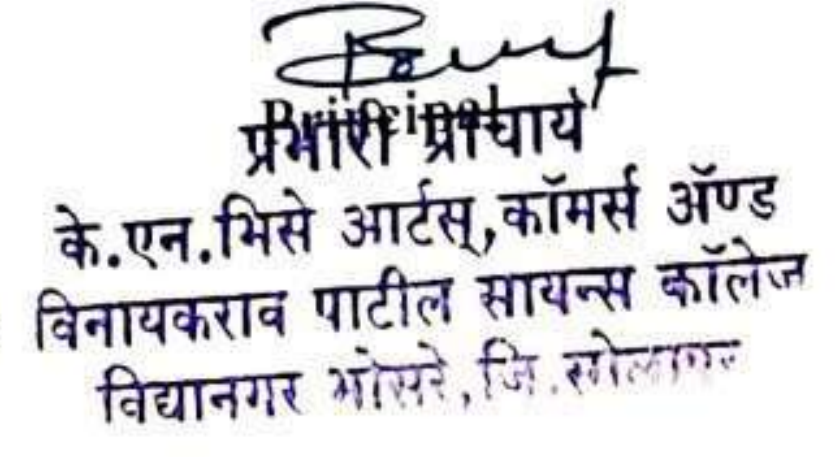 Principal
प्रभारी प्राचार्य
के.एन.भिसे आर्टस्,कॉमर्स ॲण्ड
विनायकराव पाटील सायन्स कॉलेज
विद्यानगर भोसरे,जि.सोलापूर